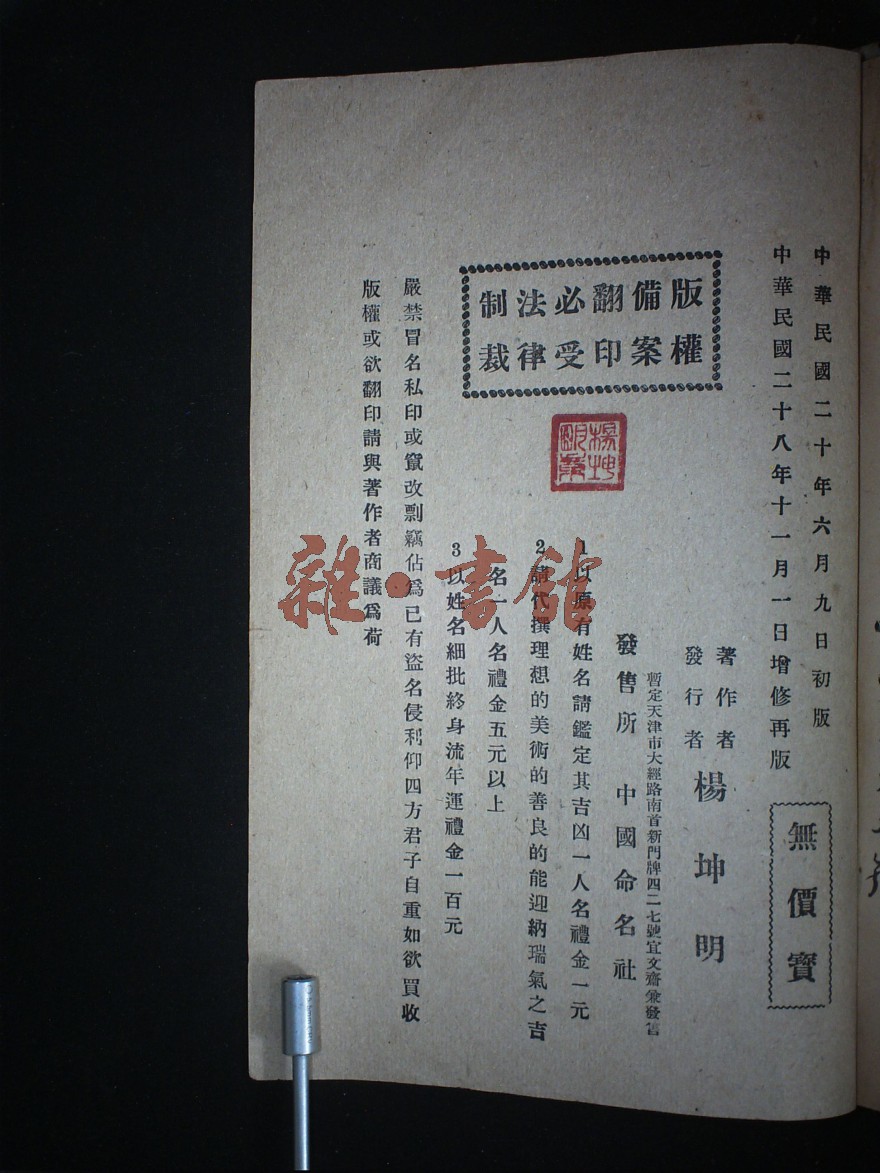 中華民國二十年六月九日初版
中華民國二十八年十一月一日增修再版
無價寶
著作者
發行者
楊坤明
暫定天津市大經路南首新門牌四二七號宜文齋兼發售
發售所 中國命名社
版權
備案
翻印
必受
法律
制裁
楊坤
明章
1以原有姓名請鑑定其吉凶一人名禮金一元
2請代撰理想的美術的善良的能迎納瑞氣之吉
名一人名禮金五元以上
3以姓名細批終身流年運禮金一百元
嚴禁冒名私印或竄改剽竊佔爲已有盜名侵利仰四方君子自重如欲買收
版權或欲翻印請與著作者商議爲荷
雜·書館